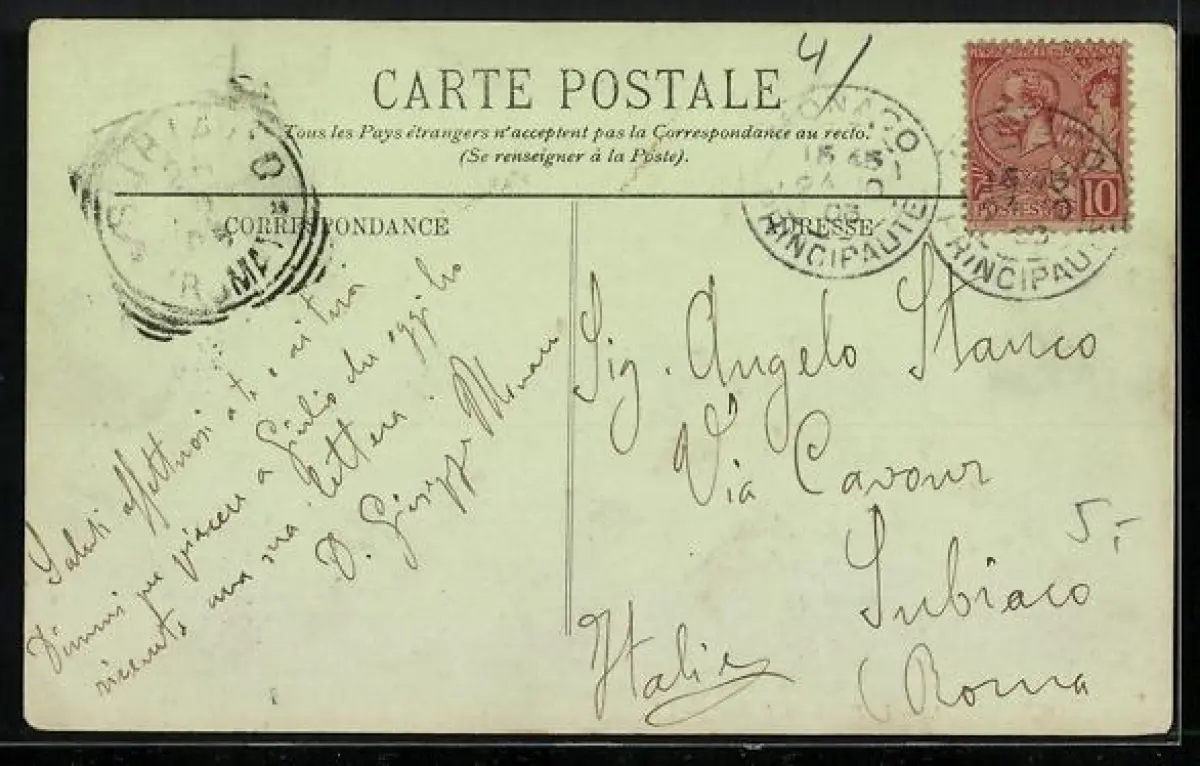 CARTE POSTALE
Tous les Pays étrangers n'acceptent pas la Correspondance au recto.
(Se renseigner à la Poste).
CORRESPONDANCE
ADRESSE
4/
MONACO
15 45
03
PRINCIPAUTE
10
SUBIACO
ROMA
Saluti affettuosi a te e ai tuoi
Dimmi per piacere a Giulio che oggi ho
ricevuto una sua lettera.
D. Giuseppe
Sig. Angelo Stanco
Via Cavour
Subiaco
5,-
(Roma
Italie